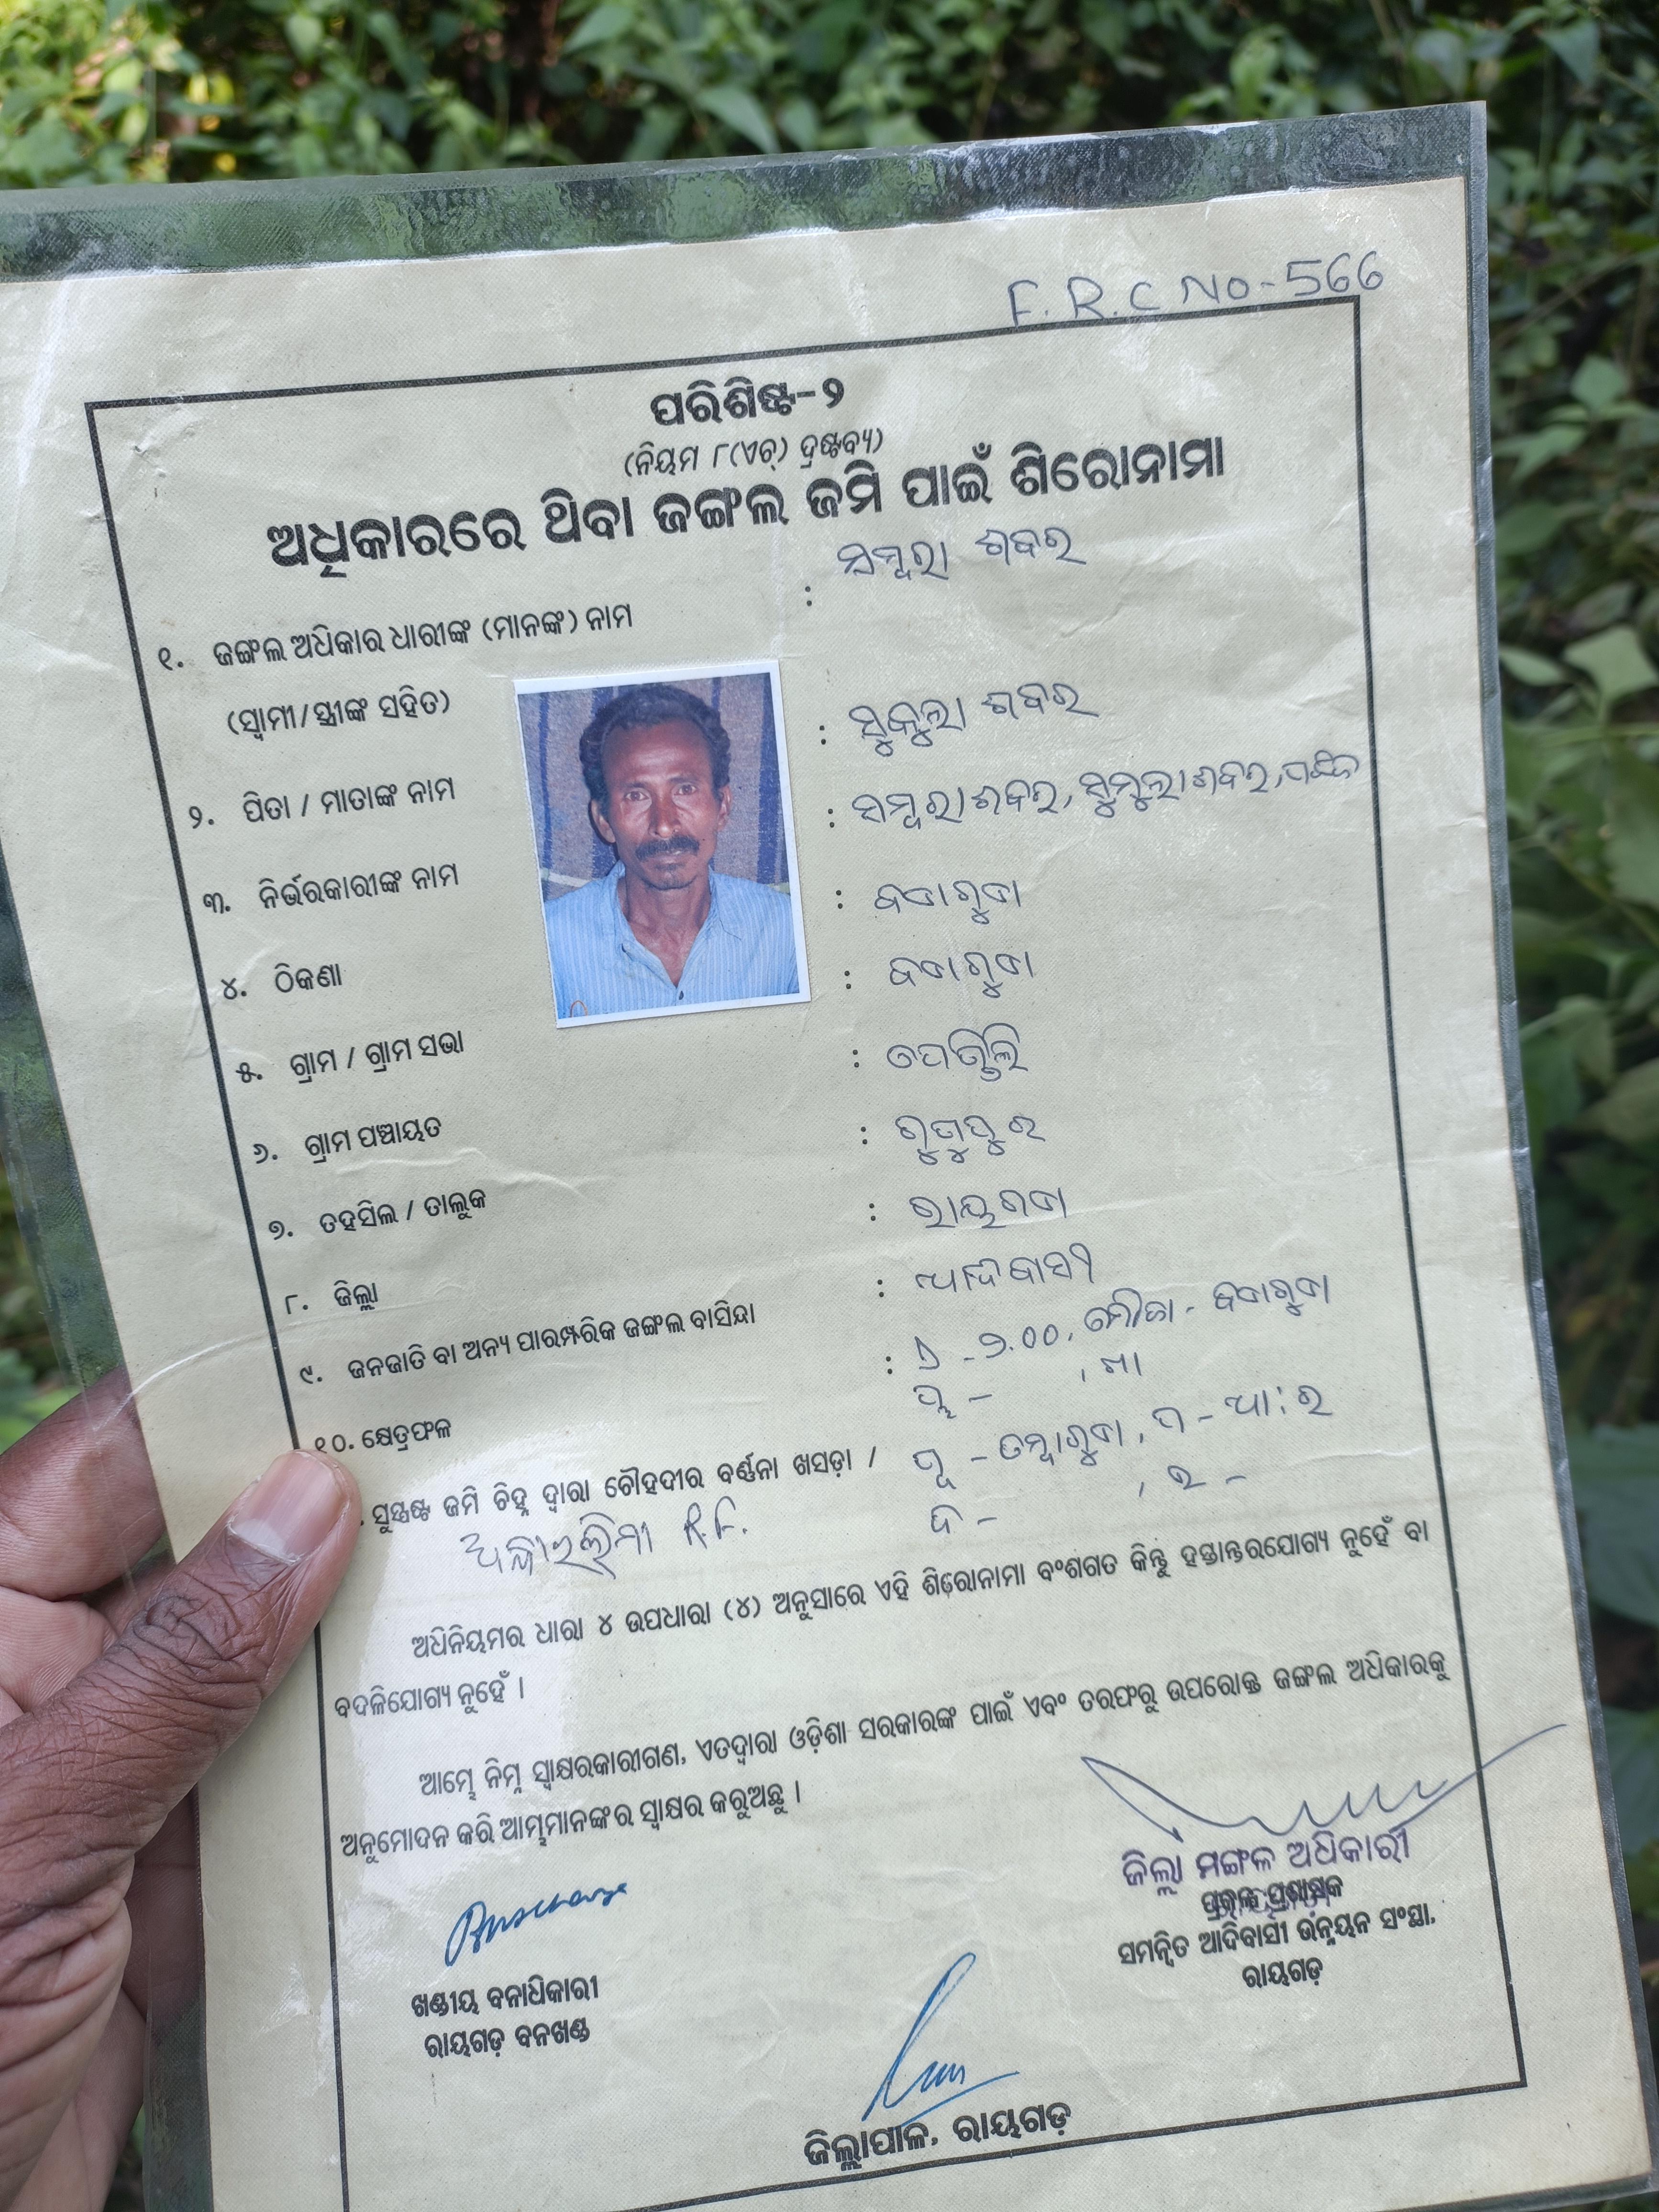 F. R. C No-566
ପରିଶିଷ୍ଟ-୨
(ନିୟମ ୮(ଏଚ୍) ଦ୍ରଷ୍ଟବ୍ୟ)
ଅଧିକାରରେ ଥିବା ଜଙ୍ଗଲ ଜମି ପାଇଁ ଶିରୋନାମା
୧. ଜଙ୍ଗଲ ଅଧିକାର ଧାରୀଙ୍କ (ମାନଙ୍କ) ନାମ : ସମ୍ବରା ଶବର
(ସ୍ୱାମୀ/ସ୍ତ୍ରୀଙ୍କ ସହିତ)
୨. ପିତା / ମାତାଙ୍କ ନାମ : ସୁକୁଲା ଶବର
୩. ନିର୍ଭରକାରୀଙ୍କ ନାମ : ସମ୍ବରା ଶବର, ସୁମୁଲା ଶବର,
୪. ଠିକଣା :
୫. ଗ୍ରାମ / ଗ୍ରାମ ସଭା :
୬. ଗ୍ରାମ ପଞ୍ଚାୟତ :
୭. ତହସିଲ / ତାଲୁକ : ଗୁଣୁପୁର
୮. ଜିଲ୍ଲା : ରାୟଗଡା
୯. ଜନଜାତି ବା ଅନ୍ୟ ପାରମ୍ପରିକ ଜଙ୍ଗଲ ବାସିନ୍ଦା : ଆଦିବାସୀ
୧୦. କ୍ଷେତ୍ରଫଳ : ମୌଜା -
. ସୁସ୍ପଷ୍ଟ ଜମି ଚିହ୍ନ ଦ୍ୱାରା ଚୌହଦୀର ବର୍ଣ୍ଣନା ଖସଡ଼ା /
R.F.
ଅଧିନିୟମର ଧାରା ୪ ଉପଧାରା (୪) ଅନୁସାରେ ଏହି ଶିରୋନାମା ବଂଶଗତ କିନ୍ତୁ ହସ୍ତାନ୍ତରଯୋଗ୍ୟ ନୁହେଁ ବା
ବଦଳିଯୋଗ୍ୟ ନୁହେଁ ।
ଆମ୍ଭେ ନିମ୍ନ ସ୍ୱାକ୍ଷରକାରୀଗଣ, ଏତଦ୍ୱାରା ଓଡ଼ିଶା ସରକାରଙ୍କ ପାଇଁ ଏବଂ ତରଫରୁ ଉପରୋକ୍ତ ଜଙ୍ଗଲ ଅଧିକାରକୁ
ଅନୁମୋଦନ କରି ଆମ୍ଭମାନଙ୍କର ସ୍ୱାକ୍ଷର କରୁଅଛୁ ।
ଜିଲ୍ଲା ମଙ୍ଗଳ ଅଧିକାରୀ
ପ୍ରକଳ୍ପ ପ୍ରଶାସକ
ସମନ୍ୱିତ ଆଦିବାସୀ ଉନ୍ନୟନ ସଂସ୍ଥା,
ରାୟଗଡ଼
ଖଣ୍ଡୀୟ ବନାଧିକାରୀ
ରାୟଗଡ଼ ବନଖଣ୍ଡ
ଜିଲ୍ଲାପାଳ, ରାୟଗଡ଼